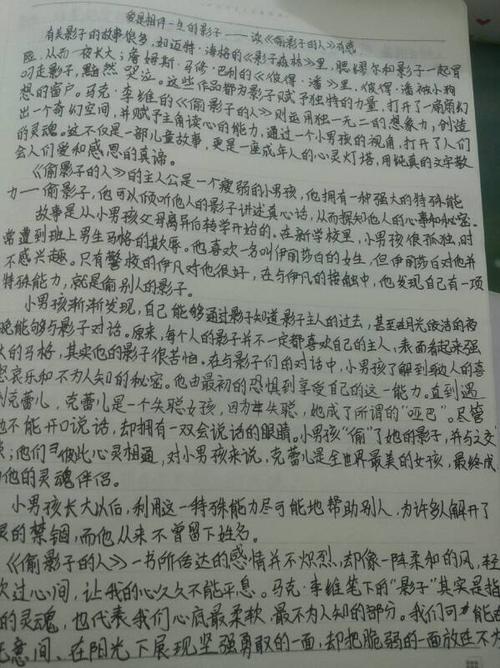 爱是相伴一生的影子——读《偷影子的人》有感
有关影子的故事很多，如迈特·海格的《影子森林》里，
险，从而一夜长大；詹姆斯·马修·巴利的《彼得·潘》里，彼得·潘被小狗
叼走影子，黯然哭泣。这些作品都为影子赋予独特的力量，打开了一扇扇幻
想的窗户。马克·李维的《偷影子的人》则运用独一无二的想象力，创造
出一个奇幻空间，并赋予主角读心的能力，通过一个小男孩的视角，打开了人们
的灵魂。这不仅是一部儿童故事，更是一座成年人的心灵灯塔，用纯真的文字教
会人们爱和感恩的真谛。
《偷影子的人》的主人公是一个瘦弱的小男孩，他拥有一种强大的特殊能
力——偷影子，他可以倾听他人的影子讲述真心话，从而探知他人的心事和秘密。
故事是从小男孩父母离异后转学开始的。在新学校里，小男孩很孤独，时
常遭到班上男生马格的欺辱。他喜欢一名叫伊丽莎白的女生，但伊丽莎白对他并
不感兴趣。只有警校的伊凡对他很好，在与伊凡的接触中，他发现自己有一项
特殊能力，就是偷别人的影子。
小男孩渐渐发现，自己能够通过影子知道影子主人的过去，甚至在月光皎洁的夜
晚能够与影子对话。原来，每个人的影子并不一定都喜欢自己的主人，表面看起来强
大的马格，其实他的影子很苦恼。在与影子们的对话中，小男孩了解到敌人的喜
怒哀乐和不为人知的秘密。他由最初的恐惧到享受自己的这一能力。直到遇
到克蕾儿，克蕾儿是一个失聪女孩，因为失聪，她成了所谓的“哑巴”。尽管
她不能开口说话，却拥有一双会说话的眼睛。小男孩“偷”了她的影子，并与之交
；他们彼此心灵相通，对小男孩来说，克蕾儿是全世界最美的女孩，最终成
为他的灵魂伴侣。
小男孩长大以后，利用这一特殊能力尽可能地帮助别人，为许多人解开了
灵的禁锢，而他从来不曾留下姓名。
《偷影子的人》一书所传达的感情并不炽烈，却像一阵柔和的风，轻
吹过心间，让我的心久久不能平息。马克·李维笔下的“影子”其实是指
的灵魂，也代表我们心底最柔软、最不为人知的部分。我们可能在
无意间、在阳光下展现坚强勇敢的一面，却把脆弱的一面放在不为